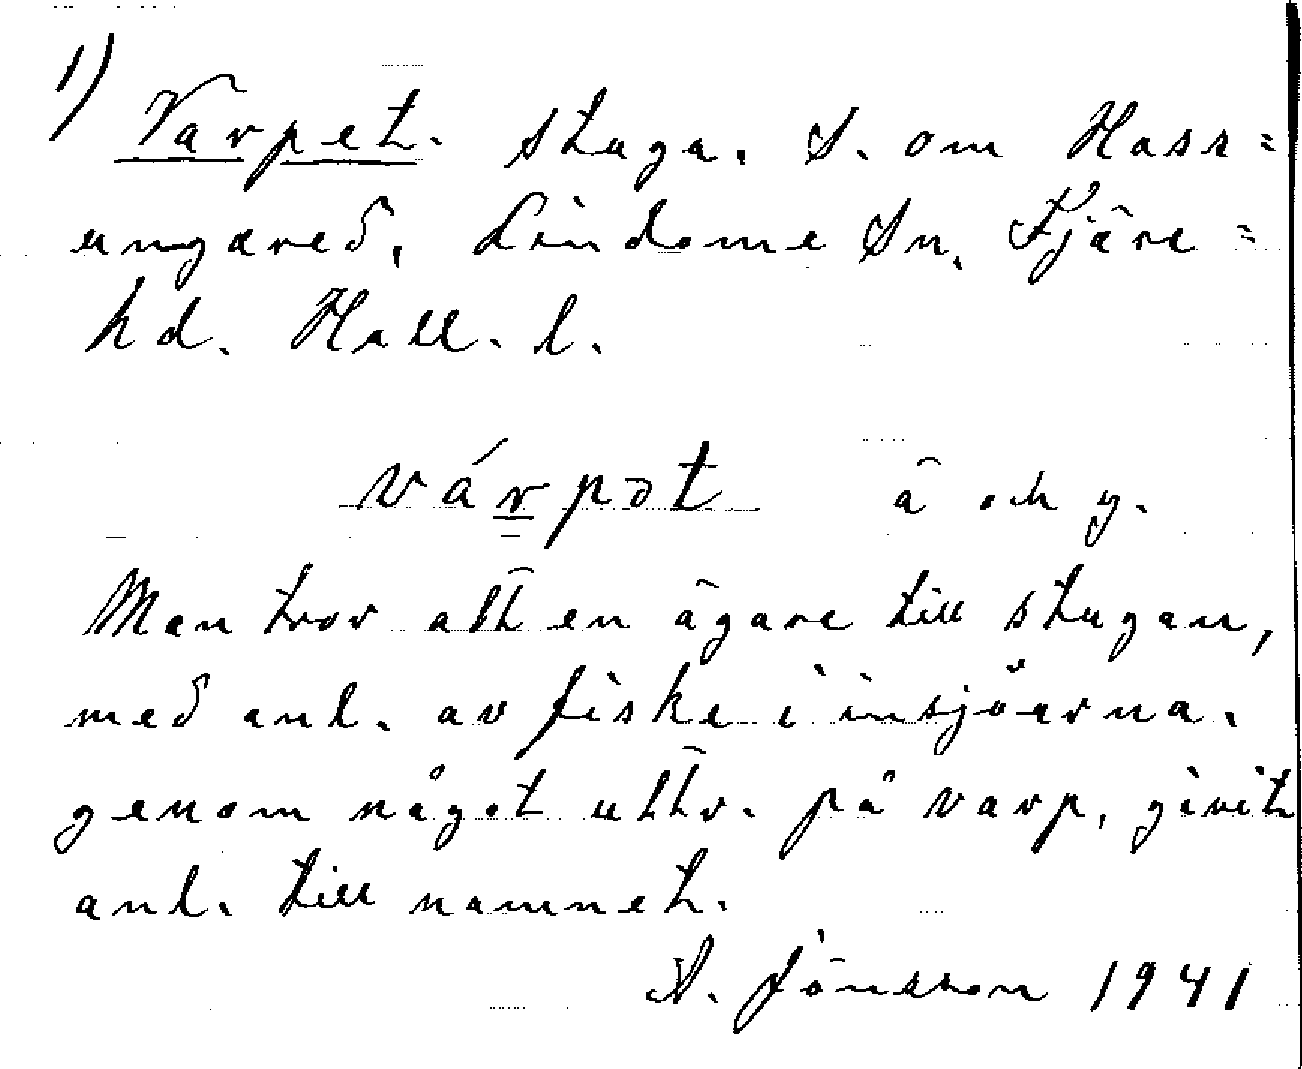 1)
Varpet. stuga. S. om Hass=
ungared, Lindome Sn. Fjäre=
hd. Hall. l.
várpət ä och y.
Man tror att en ägare till stugan,
med anl. av fiske i insjöarna.
genom något uttr. på varp, givit
anl. till namnet.
A. Jönsson 1941